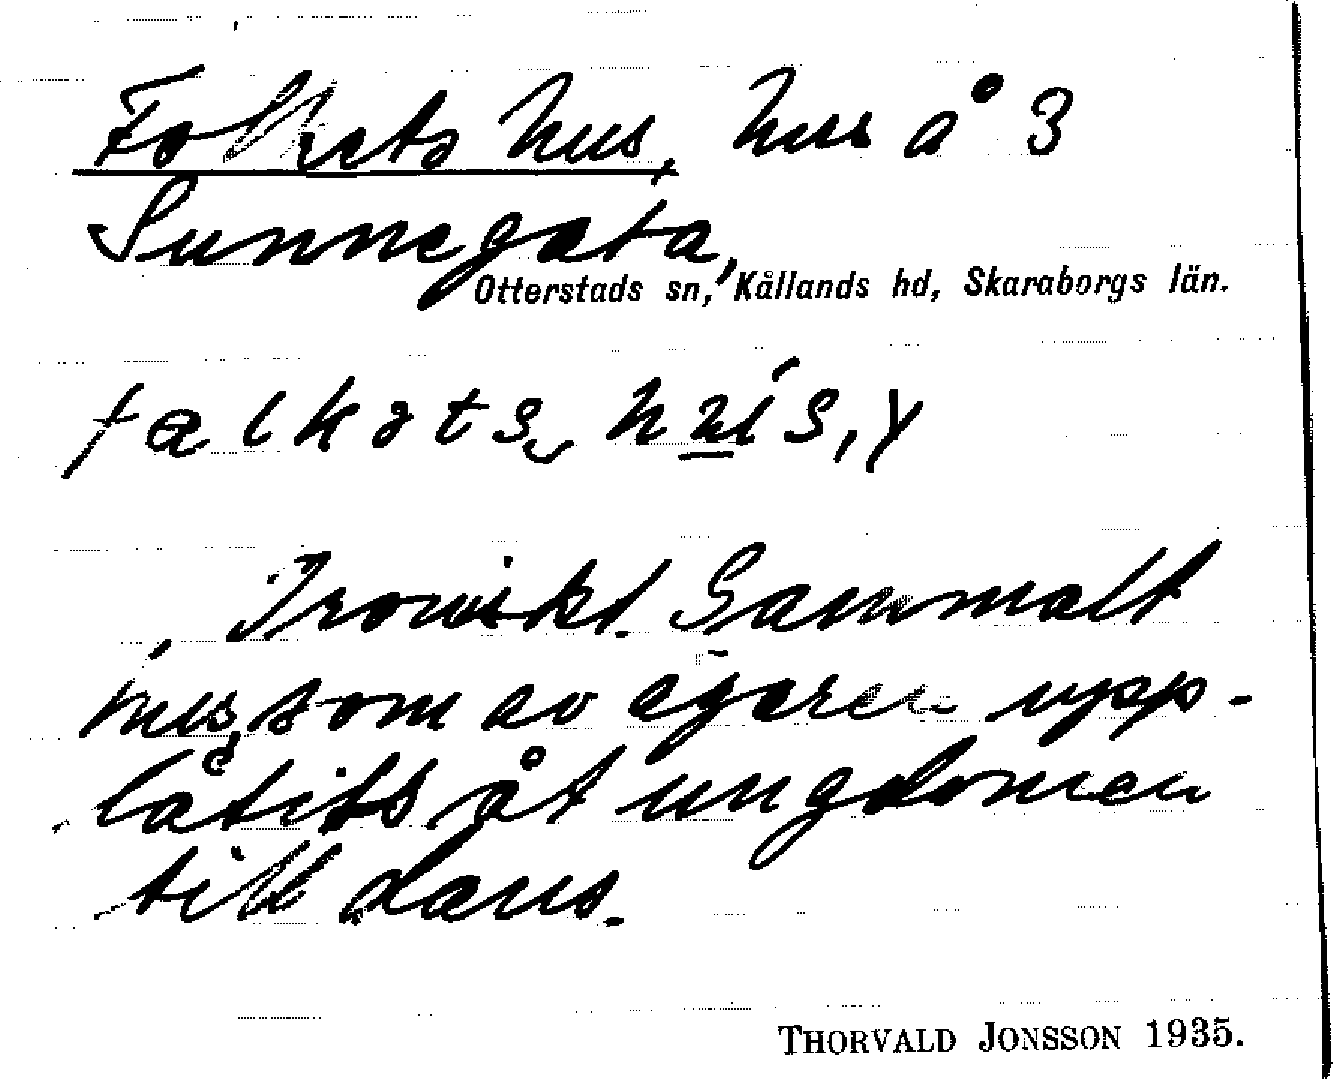 Folkets hus, hus å 3
Sunnegata,
Otterstads sn, Kållands hd, Skaraborgs län.
Ironiskt. Gammalt
hus, som av ägaren upp-
låtits åt ungdomen
till dans.
THORVALD JONSSON 1935.